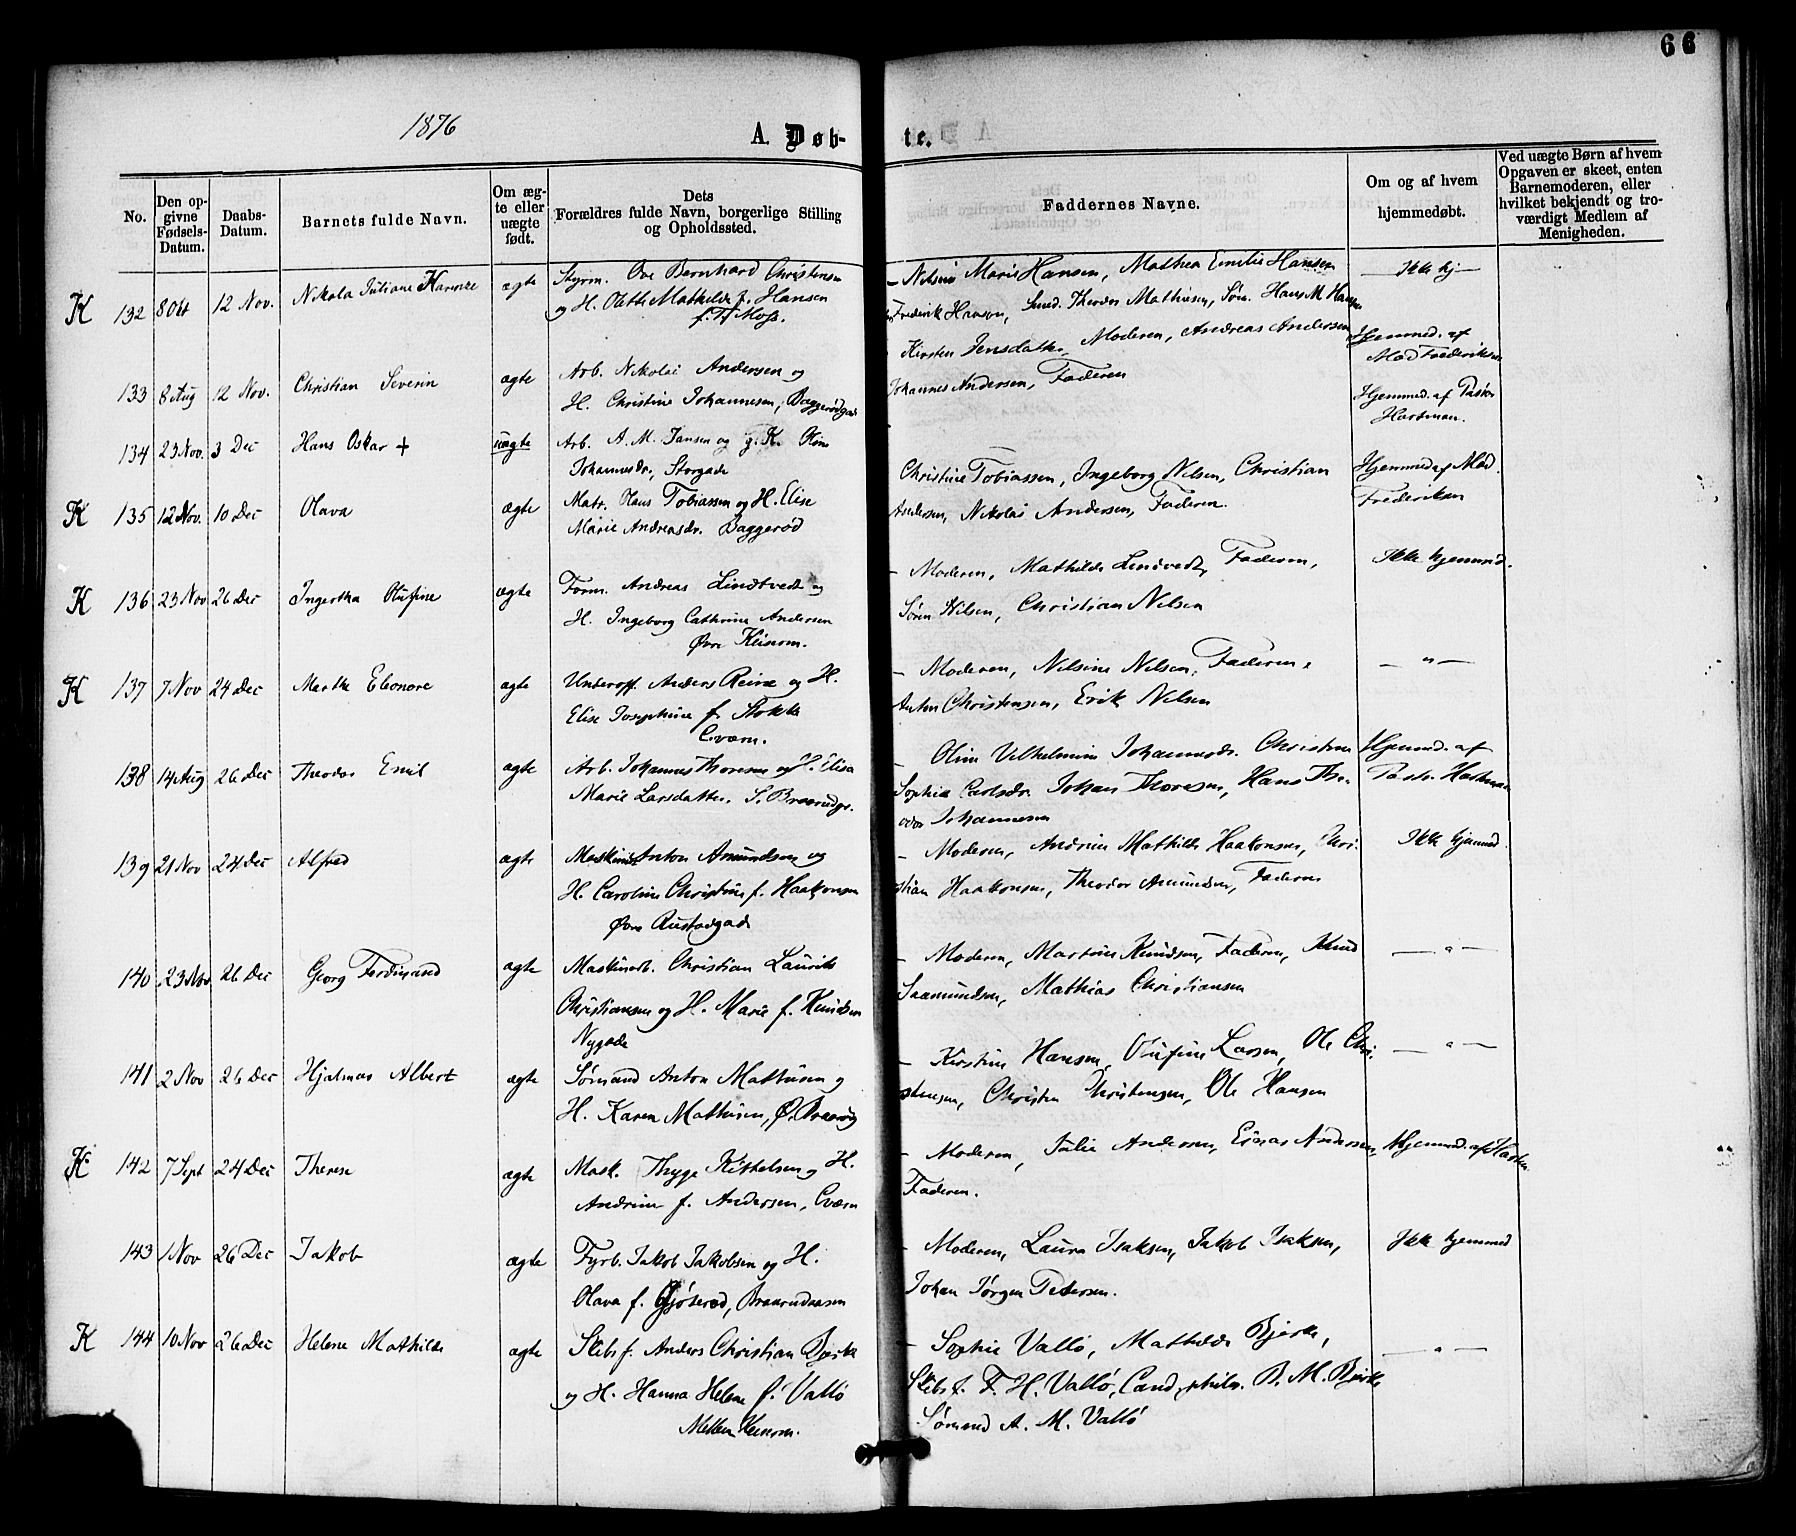 66
1876
A. Døb-
te.
No.
Den op-
givne
Fødsels-
Datum.
Daabs-
Datum.
Barnets fulde Navn.
Om æg-
te eller
uægte
født.
Dets
Forældres fulde Navn, borgerlige Stilling
og Opholdssted.
Faddernes Navne.
Om og af hvem
hjemmedøbt.
Ved uægte Børn af hvem
Opgaven er skeet, enten
Barnemoderen, eller
hvilket bekjendt og tro-
værdigt Medlem af
Menigheden.
K 132 8 Okt 12 Nov. Nikola Juliane ægte
Styrm. Ove Bernhard Christensen
og H. Mathilde f. Hansen
f. Moss.
Marie Hansen, Mathea Emilie Hansen
Frederik Hansen, Smed. Theodor Mathisen, Hans M. Hansen
Ikke hj
133 8 Aug 12 Nov. Christian Severin ægte
Arb. Nikolai Andersen og
H. Christine Johannesen, Baggerødgad
Kirsten Jensdatter, Moderen, Andreas Andersen
Johannes Andersen, Faderen
Hjemmed. af
Mad Frederiksen
134 23 Nov. 3 Dec Hans Oskar + uægte
Arb. A. M. Jansen og g. K.
Johannesdr, Storgade
Hjemmed. af Pastor
Hartman.
K 135 12 Nov. 10 Dec Olava ægte
Matr. Olaus Tobiassen og H. Elise
Marie Andreasdr. Baggerød
Christine Tobiassen, Ingeborg Nilsen, Christian
Andersen, Nikolai Andersen, Faderen.
Hjemmed af Mad.
Frederiksen
K 136 23 Nov 26 Dec Olufine ægte
Form. Andreas Lindtvedt og
H. Ingeborg Cathrine Andersen
Øvre Keiserm.
– Moderen, Mathilde Lindvedt, Faderen,
Søren Nilsen, Christian Nilsen
Ikke hjemmed.
K 137 7 Nov 24 Dec Marthe Eleonore ægte
Underoff. Anders Reine og H.
Elise Josephine f. Stokke
Cværn.
– Moderen, Nilsine Nilsen, Faderen,
Anton Christensen, Erik Nilsen
— " —
138 14 Aug 26 Dec Theodor Emil ægte
Arb. Johannes Thoresen og H. Elisa
Marie Larsdatter. S. Braarudgr.
Oline Vilhelmine Johannesdr. Christine
Sophie Carlsdr. Johan Thoresen, Hans The-
odor Johannesen
Hjemmed. af
Pastr. Hartman
139 21 Nov 24 Dec Alfred ægte
Maskinist Anton Amundsen og
H. Caroline Christine f. Haakonsen
Øvre Rustadgade
– Moderen, Andrine Mathilde Haakonsen, Chri-
stian Haakonsen, Theodor Amundsen, Faderen
Ikke hjemmed
140 23 Nov 26 Dec Georg Ferdinand ægte
Maskinarb. Christian Laurits
Christiansen og H. Marie f. Knudsen
Nygade
– Moderen, Martine Knudsen, Faderen, Knud
Saamundsen, Mathias Christiansen
— " —
141 2 Nov 26 Dec Hjalmar Albert ægte
Sømand Anton Mathisen og
H. Karen Mathisen, Ø. Braarug
– Kirstine Hansen, Olufine Larsen, Ole Chri-
stensen, Christen Christensen, Ole Hansen
— " —
K 142 7 Sept 24 Dec Therese ægte
Mask. Thyge Kittelsen og H.
Andrine f. Andersen, Cværn
– Moderen, Julie Andersen, Andersen,
Faderen.
Hjemmed. af
143 1 Nov 26 Dec Jakob ægte
Fyrb. Jakob Jakobsen og H.
Olava f. Gjøterød, Braarudaasen
– Moderen, Laura Isaksen, Jakob Isaksen,
Johan Jørgen Petersen.
Ikke hjemmed
K 144 10 Nov 26 Dec Helene Mathilde ægte
Skibsf. Anders Christian Bjerke
og H. Hanna Helene f. Vallø
Mellem Keiserm.
– Sophie Vallø, Mathilde Bjerke,
Skibsf. F. H. Vallø, Cand. philos. B. M. Bjerke
Sømand A. M. Vallø
— " —